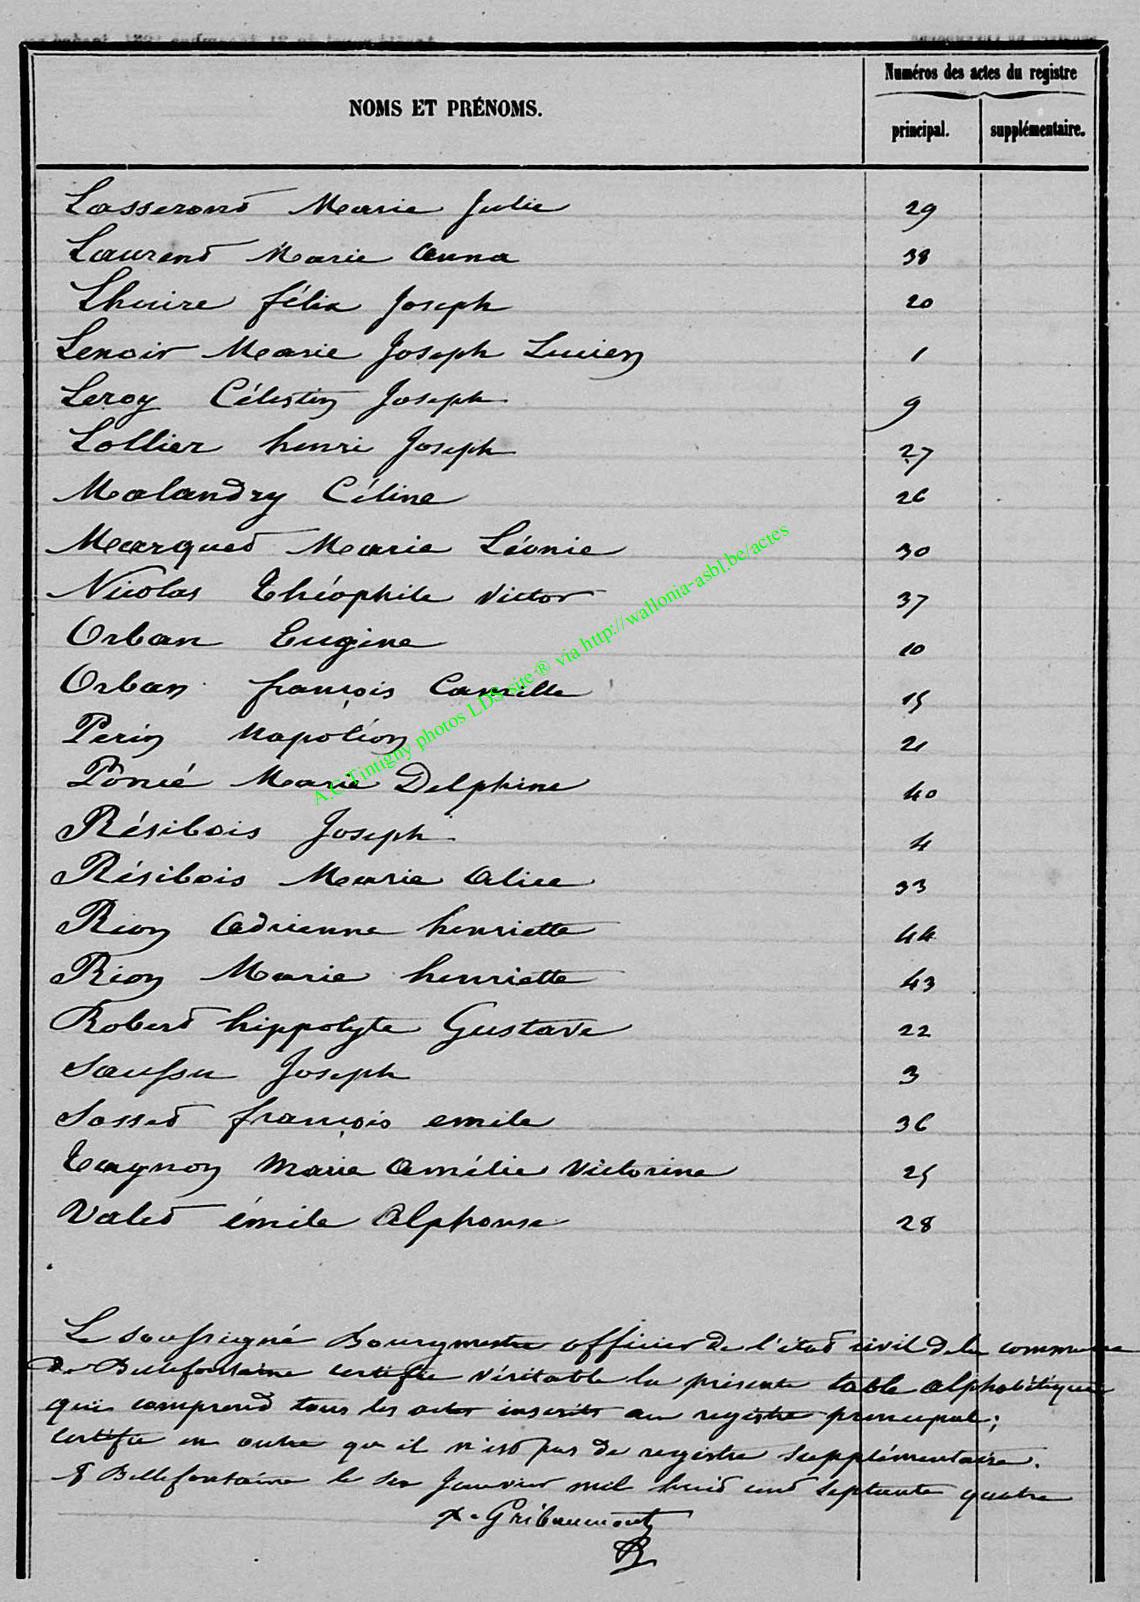 Numéros des actes du registre
NOMS ET PRÉNOMS.
principal. supplémentaire.
Lasseront Marie Julie 29
Laurent Marie Anna 38
Lhuire félix Joseph 20
Lenoir Marie Joseph Lucien 1
Leroy Célestin Joseph 9
Lollier henri Joseph 27
Malandry Céline 26
Marquet Marie Léonie 30
Nicolas Théophile Victor 37
Orban Eugène 10
Orban françois Camille 15
Perin Napoléon 21
Poncé Marie Delphine 40
Résibois Joseph 4
Résibois Marie Alice 33
Rion Adrienne henriette 44
Rion Marie henriette 43
Robert hippolyte Gustave 22
Joseph 3
Sosset françois emile 36
Tagnon Marie Amélie Victorine 25
Valet émile Alphonse 28
Le soussigné Bourgmestre officier de l'état civil de la commune
de Bellefontaine certifie véritable la présente table alphabétique
qui comprend tous les actes inscrits au registre principal;
certifie en outre qu'il n'est pas de registre supplémentaire.
à Bellefontaine le six Janvier mil huit cent septante quatre
Gribaumont
A.C.Tintigny photos LDS-site ® via http://wallonia-asbl.be/actes